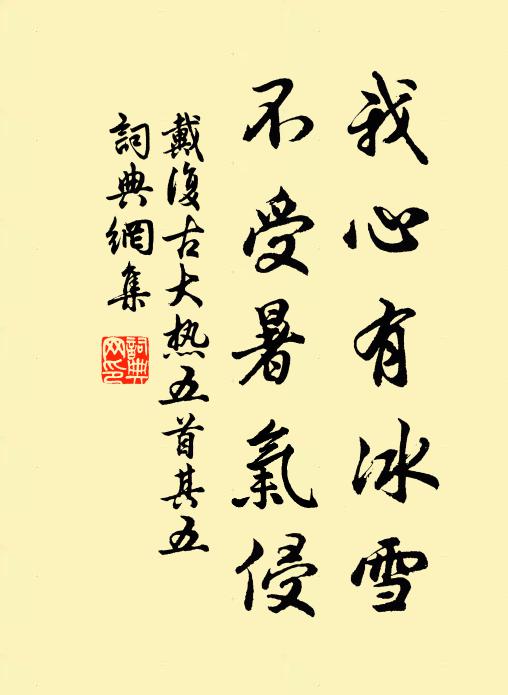 我心有冰雪
不受暑氣侵
戴復古大热五首其五
詞典網集
詞典網印